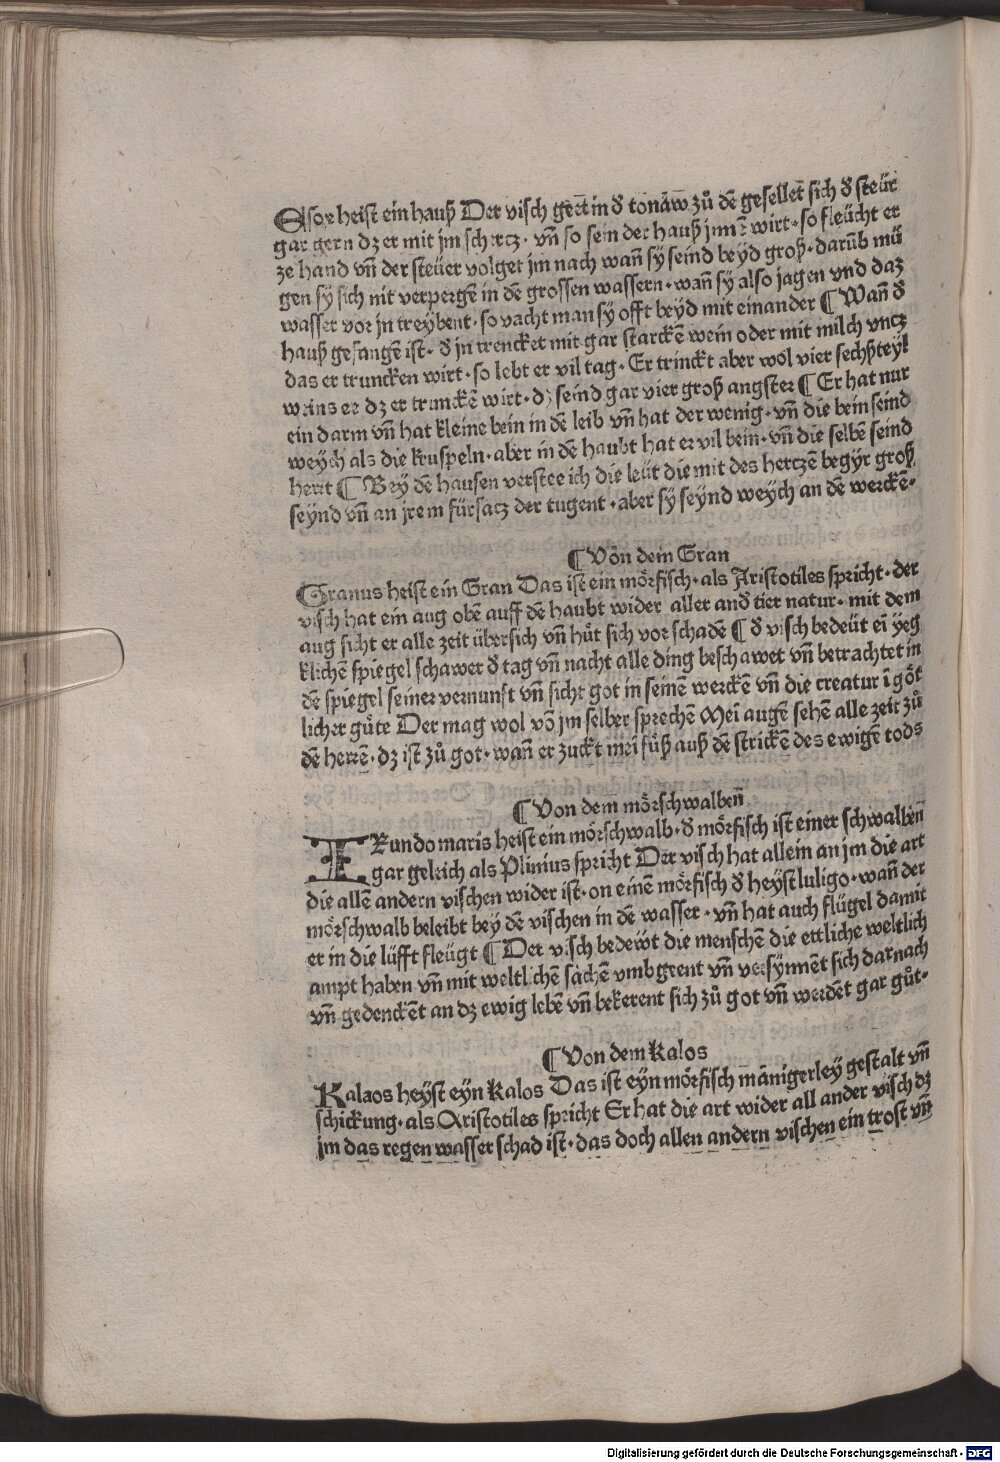 Esox heist ein hauß Der visch geet̄ in d̕ tonāw zů dē gesellet̄ sich d̕ steür
gar gern dz er mit jm schertz· vn̄ so sein der hauß jnnē wirt· so fleücht er
ze hand vn̄ der steüer volget jm nach wan̄ sy seind beyd groß· darūb mü
gen sy sich nit verpergē in dē grossen wassern· wan̄ sy also jagen vnd daz
wasser vor jn treybent· so vacht man sy offt beyd mit einander ¶ Wan̄ d̕
hauß gefangē ist· d̕ jn trencket mit gar starckē wein oder mit milch vncz
das er truncken wirt· so lebt er vil tag· Er trinckt aber wol vier sechßteyl
weins ee dz er trunckē wirt· dz seind gar vier groß angster ¶ Er hat nur
ein darm vn̄ hat kleine bein in dē leib vn̄ hat der wenig· vn̄ die bein seind
weych als die kruspeln· aber in dē haubt hat er vil bein· vn̄ die selbē seind
hertt ¶ Bey dē hausen verstee ich die leüt die mit des hertzē begyr groß
seynd vn̄ an jrem fürsatz der tugent· aber sy seynd weych an dē werckē·
¶ Von dem Gran
Granus heist ein Gran Das ist ein mörfisch· als Aristotiles spricht· der
visch hat ein aug obē auff dē haubt wider aller and̕ tier natur· mit dem
aug sicht er alle zeit übersich vn̄ hüt sich vor schadē ¶ d̕ visch bedeüt eī yeg
klichē spiegel schawer d̕ tag vn̄ nacht alle ding beschawet vn̄ betrachtet in
dē spiegel seiner vernunft vn̄ sicht got in seinē werckē vn̄ die creatur ī göt
licher güte Der mag wol vō jm selber sprechē Meī augē sehē alle zeit zů
dē herrē· dz ist zů got· wan̄ er zuckt mei füß auß dē strickē des ewigē tods
¶ Von dem mörschwalben̄
IRundo maris heist ein mörschwalb· d̕ mörfisch ist einer schwalben̄
gar geleich als Plinius spricht Der visch hat allein an jm die art
die allē andern vischen wider ist· on einē mörfisch d̕ heyst luligo· wan̄ der
mörschwalb beleibt bey dē vischen in dē wasser· vn̄ hat auch flügel damit
er in die lüfft fleügt ¶ Der visch bedewt die menschē die ettliche weltlich
ampt haben vn̄ mit weltlichē sachē vmbgeent vn̄ versynnēt sich darnach
vn̄ gedenckēt an dz ewig lebē vn̄ bekerent sich zů got vn̄ werdēt gar gůt·
¶ Von dem Kalos
Kalaos heyst eyn Kalos Das ist eyn mörfisch mānigerley gestalt vn̄
schickung· als Aristotiles spricht Er hat die art wider all ander visch dz
jm das regen wasser schad ist· das doch allen andern vischen ein trost vn̄
Digitalisierung gefördert durch die Deutsche Forschungsgemeinschaft - DFG